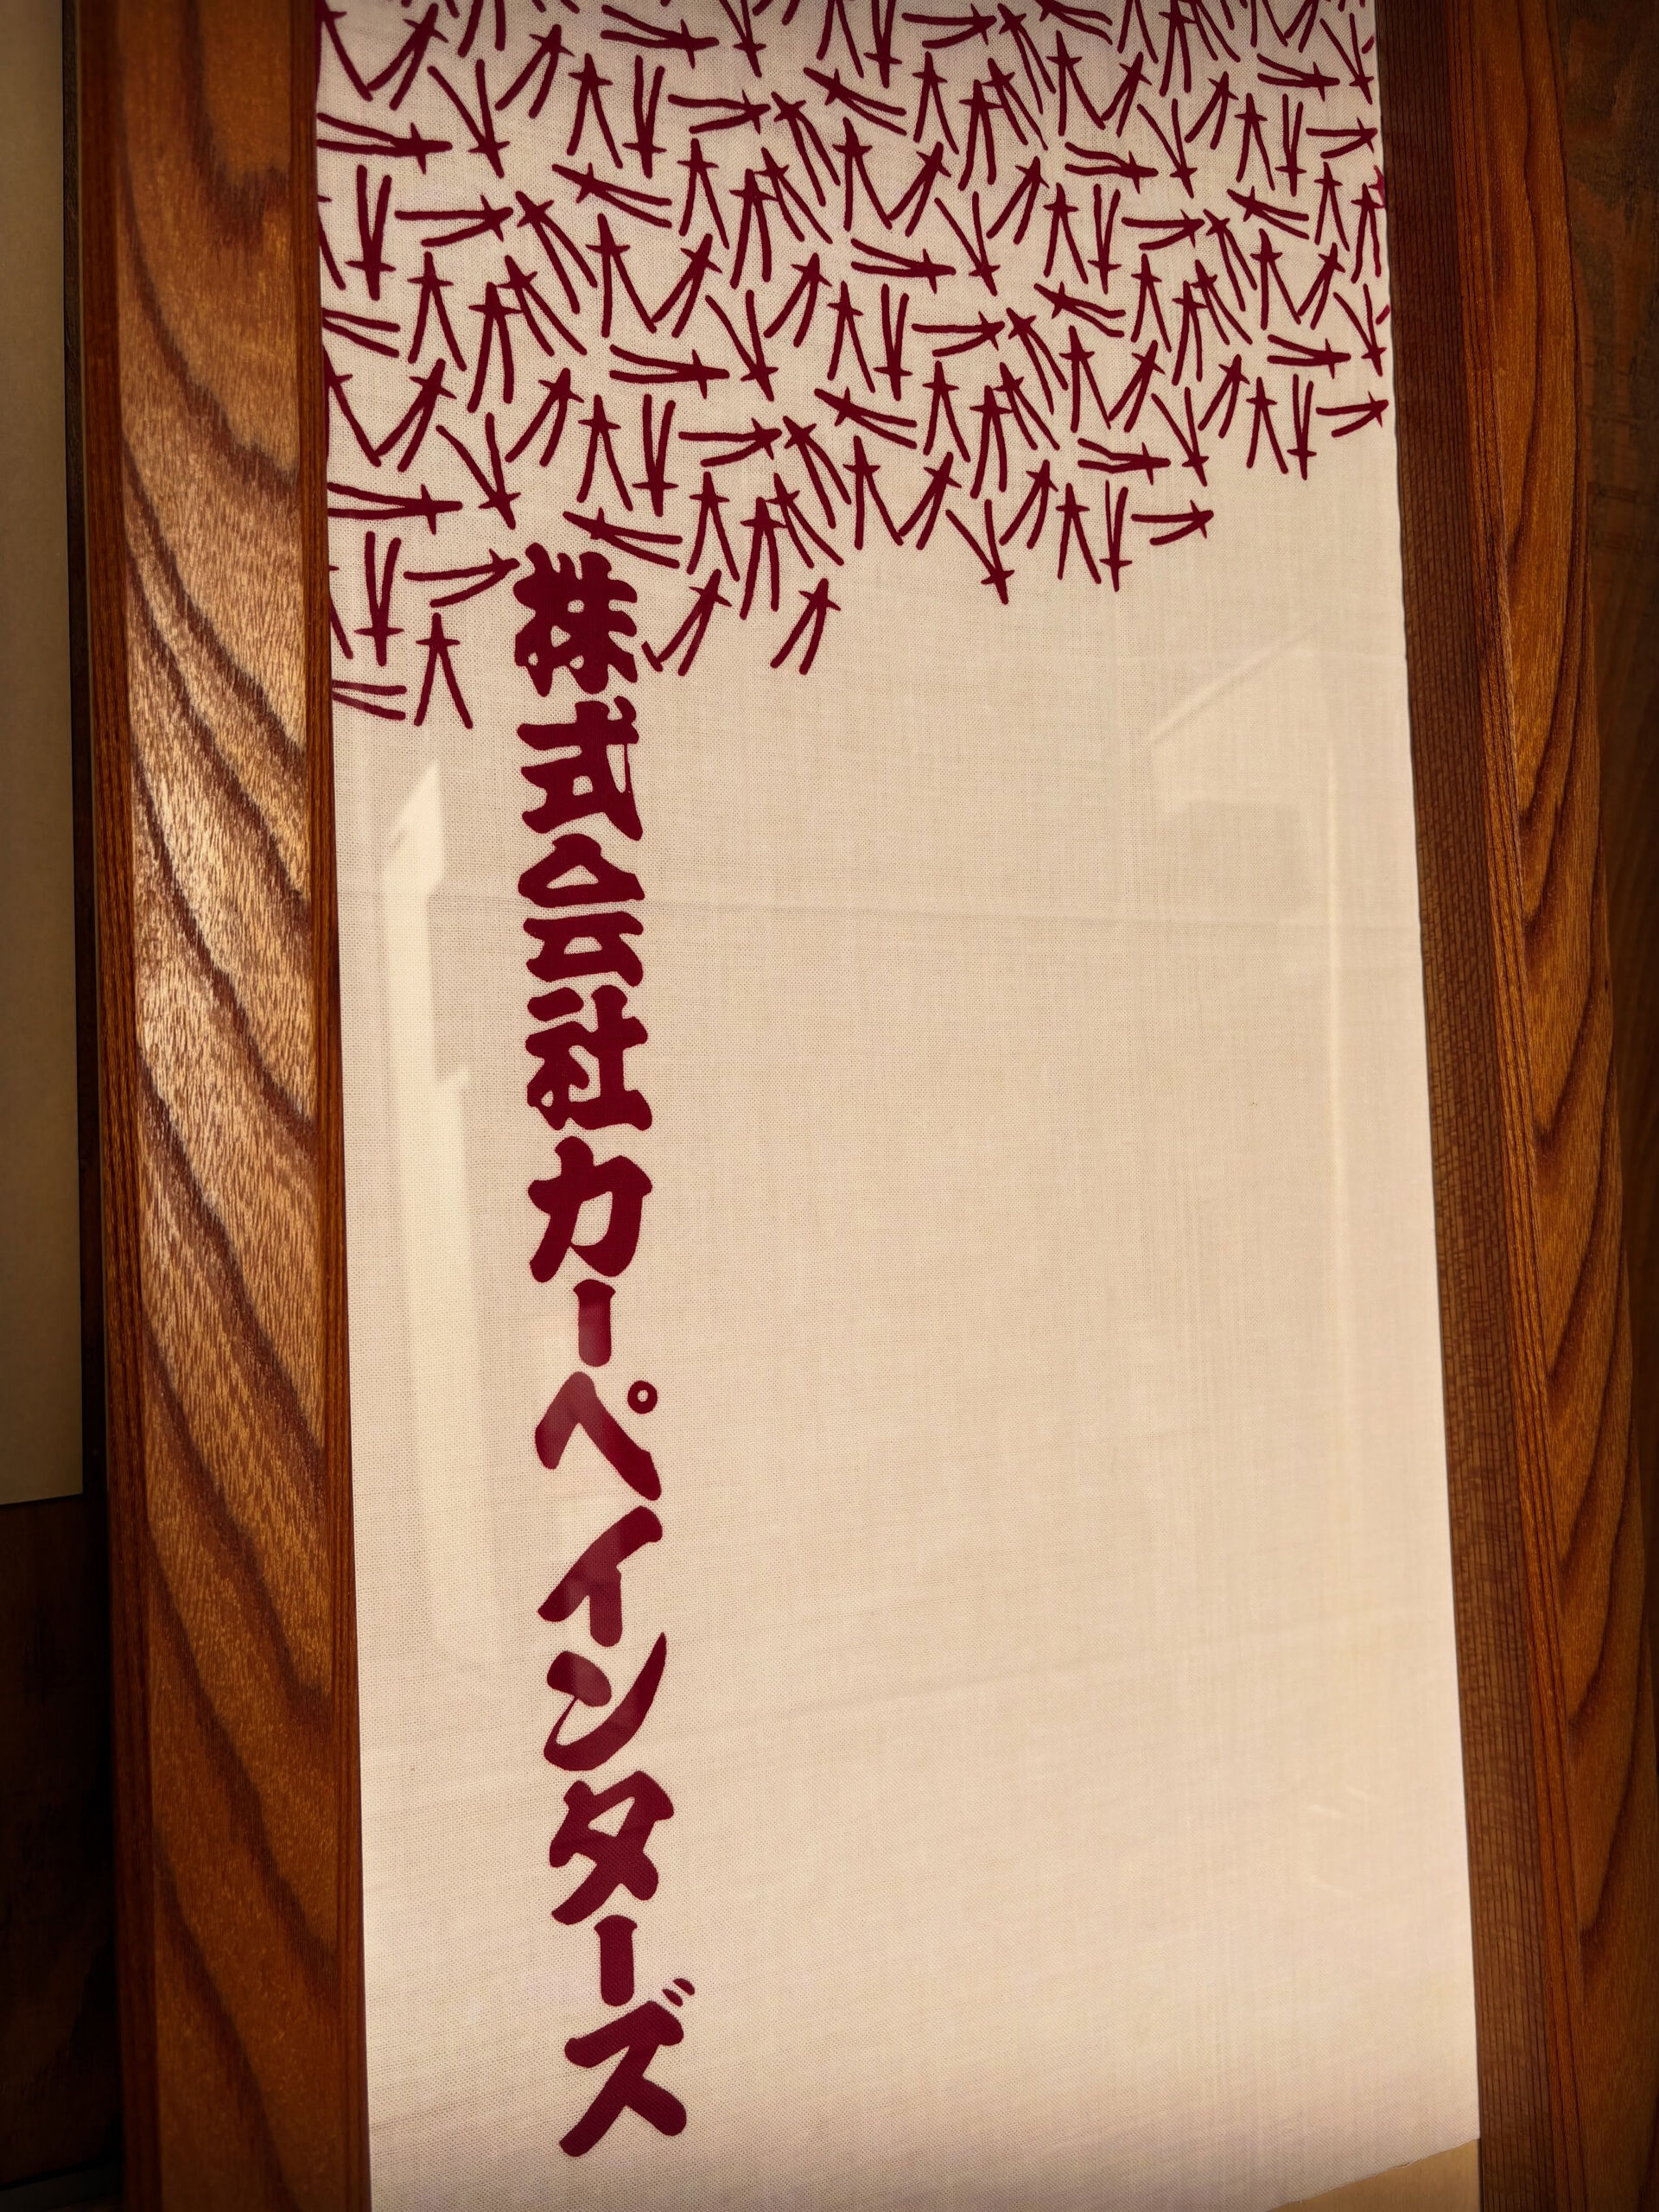 株式会社カーペインターズ